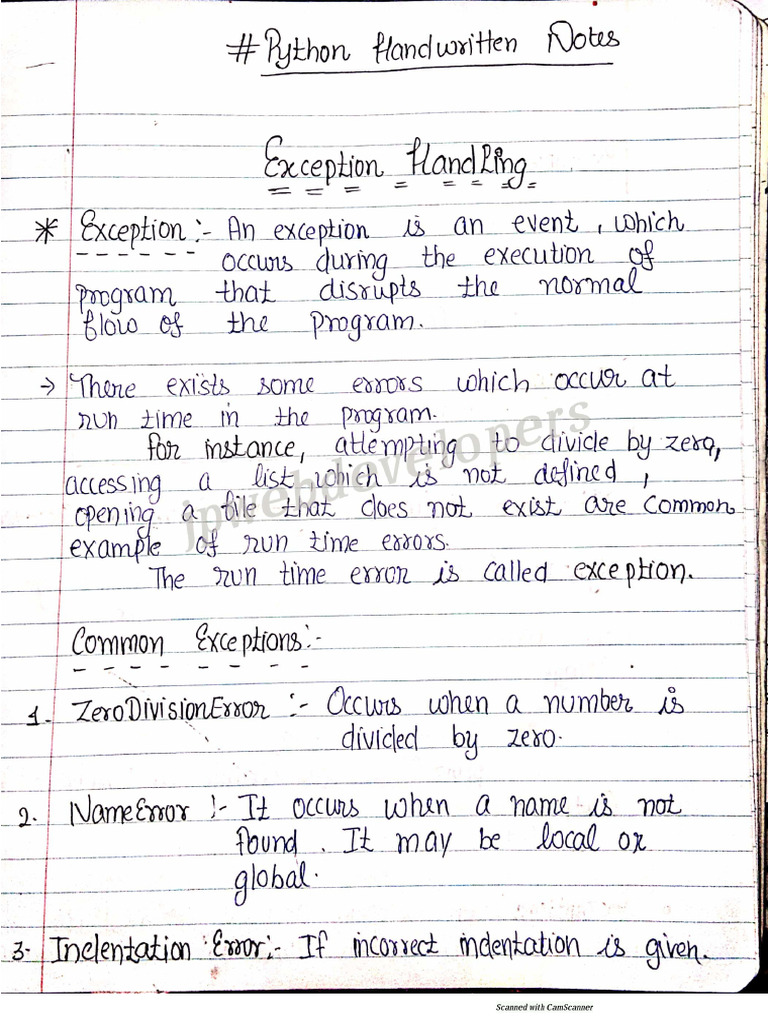 # Python Handwritten Notes
Exception Handling
* Exception :- An exception is an event, which
occurs during the execution of
program that disrupts the normal
flow of the program.
→ There exists some errors which occur at
run time in the program.
For instance, attempting to divide by zero,
accessing a list which is not defined,
opening a file that does not exist are common
example of run time errors.
The run time error is called exception.
jpwebdevelopers
Common Exceptions :-
1. ZeroDivisionError :- Occurs when a number is
divided by zero.
2. NameError :- It occurs when a name is not
found. It may be local or
global.
3- Indentation Error :- If incorrect indentation is given.
Scanned with CamScanner